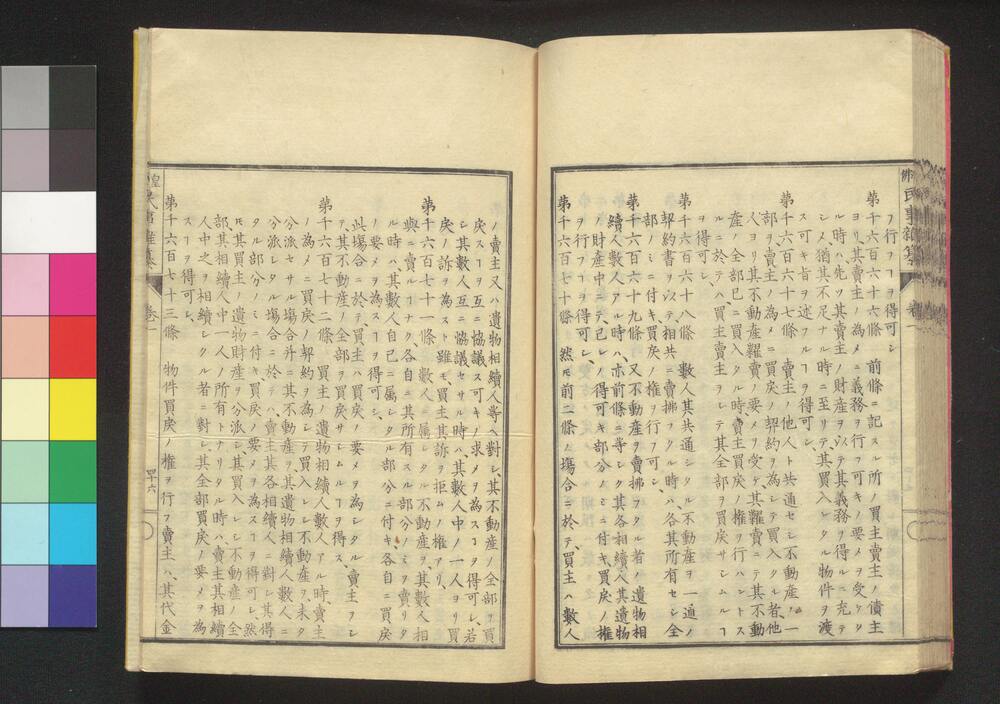 フ行フヿヲ得可シ
第千六百六十六條 前條ニ記スル所ノ買主賣主ノ債主
ヨリ其賣主ノ為メニ義務ヲ行フ可キノ要メヲ受ケタ
ル時ハ先ツ其賣主ノ財産ヲ以テ其義務ヲ得ルニ充テ
シメ猶其不足ナル時ニ至リテ其買入レタル物件ヲ渡
ス可キ旨ヲ述フルヿヲ得可シ
第千六百六十七條 賣主ノ他人ト共通セシ不動産ノ一
部ヲ賣主ノ為メニ買戻ノ契約ヲ為シテ買入レタル者他
人ヨリ其不動産糶賣ノ要メヲ受ケ其糶賣ニテ其不動
産ノ全部已ニ買入タル時賣主買戻ノ權ヲ行ハントス
ルニ於テハ買主賣主ヲシテ其全部ヲ買戻サシムルヿ
ヲ得可シ
第千六百六十八條 數人其共通シタル不動産ヲ一通ノ
契約書ヲ以テ相共ニ賣拂フタル時ハ各其所有セシ全
部ノミニ付キ買戻ノ權ヲ行フ可シ
第千六百六十九條 又不動産ヲ賣拂フタル者ノ遺物相
續人數人アル時ハ亦前條ニ等シク其各相續人其遺物
ノ財産中ニテ己レノ得可キ部分ノミニ付キ買戻ノ權
ヲ行フヿヲ得可シ
第千六百七十條 然𪜈前二條ノ塲合ニ於テ買主ハ數人
佛民事雜纂
ノ賣主又ハ遺物相續人等ヘ對シ其不動産ノ全部ヲ買
戻スヿヲ互ニ協議ス可キノ求メヲ為スヿヲ得可シ若
シ其數人互ニ協議セサル時ハ其數人中ノ一人ヨリ買
戻ノ訴ヲ為スト雖モ買主其訴ヲ拒ムノ權アリ
第千六百七十一條 數人ニ属シタル不動産ヲ其數人相
與ニ賣ルヿナク各自ニ其所有スル部分ノミヲ賣リタ
ル時ハ其數人自己ニ属シタル部分ニ付キ各自ニ買戻
ノ要メヲ為スヿヲ得可シ
此塲合ニ於テ買主ハ買戻ノ要メヲ為シタル賣主ヲシ
テ其不動産ノ全部ヲ買戻サシムルヿヲ得ス
第千六百七十二條 買主ノ遺物相續人數人アル時賣主
ノ為メニ買戻ノ契約ヲ為シテ買入レシ不動産ヲ未タ
分派セサル塲合并ニ其不動産ヲ其遺物相續人數人ニ
分派シタル塲合ニ於テハ賣主其各相續人ニ對シ其得
タル部分ノミニ付キ買戻ノ要メヲ為スヿヲ得可シ然
𪜈其買主ノ遺物財産ヲ分派シ其買入レシ不動産ノ全
部其相續人中一人ノ所有トナリタル時ハ賣主其相續
人中之ヲ相續シタル者ニ對シ其全部買戻ノ要メヲ為
スヿヲ得可シ
第千六百七十三條 物件買戻ノ權ヲ行フ賣主ハ其代金
卷一
四十六